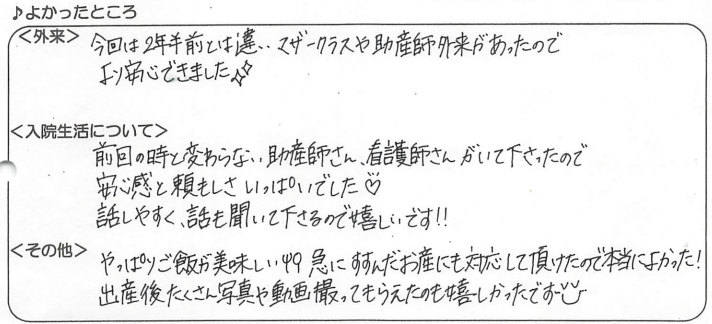 ♪よかったところ
<外来> 今回は2年半前とは違い、マザークラスや助産師外来があったので
より安心できました
<入院生活について>
前回の時と変わらない助産師さん、看護師さんがいて下さったので
安心感と頼もしさいっぱいでした♡
話しやすく、話も聞いて下さるので嬉しいです!!
<その他> やっぱりご飯が美味しい 急にすすんだお産にも対応して頂けたので本当によかった!
出産後たくさん写真や動画撮ってもらえたのも嬉しかったです